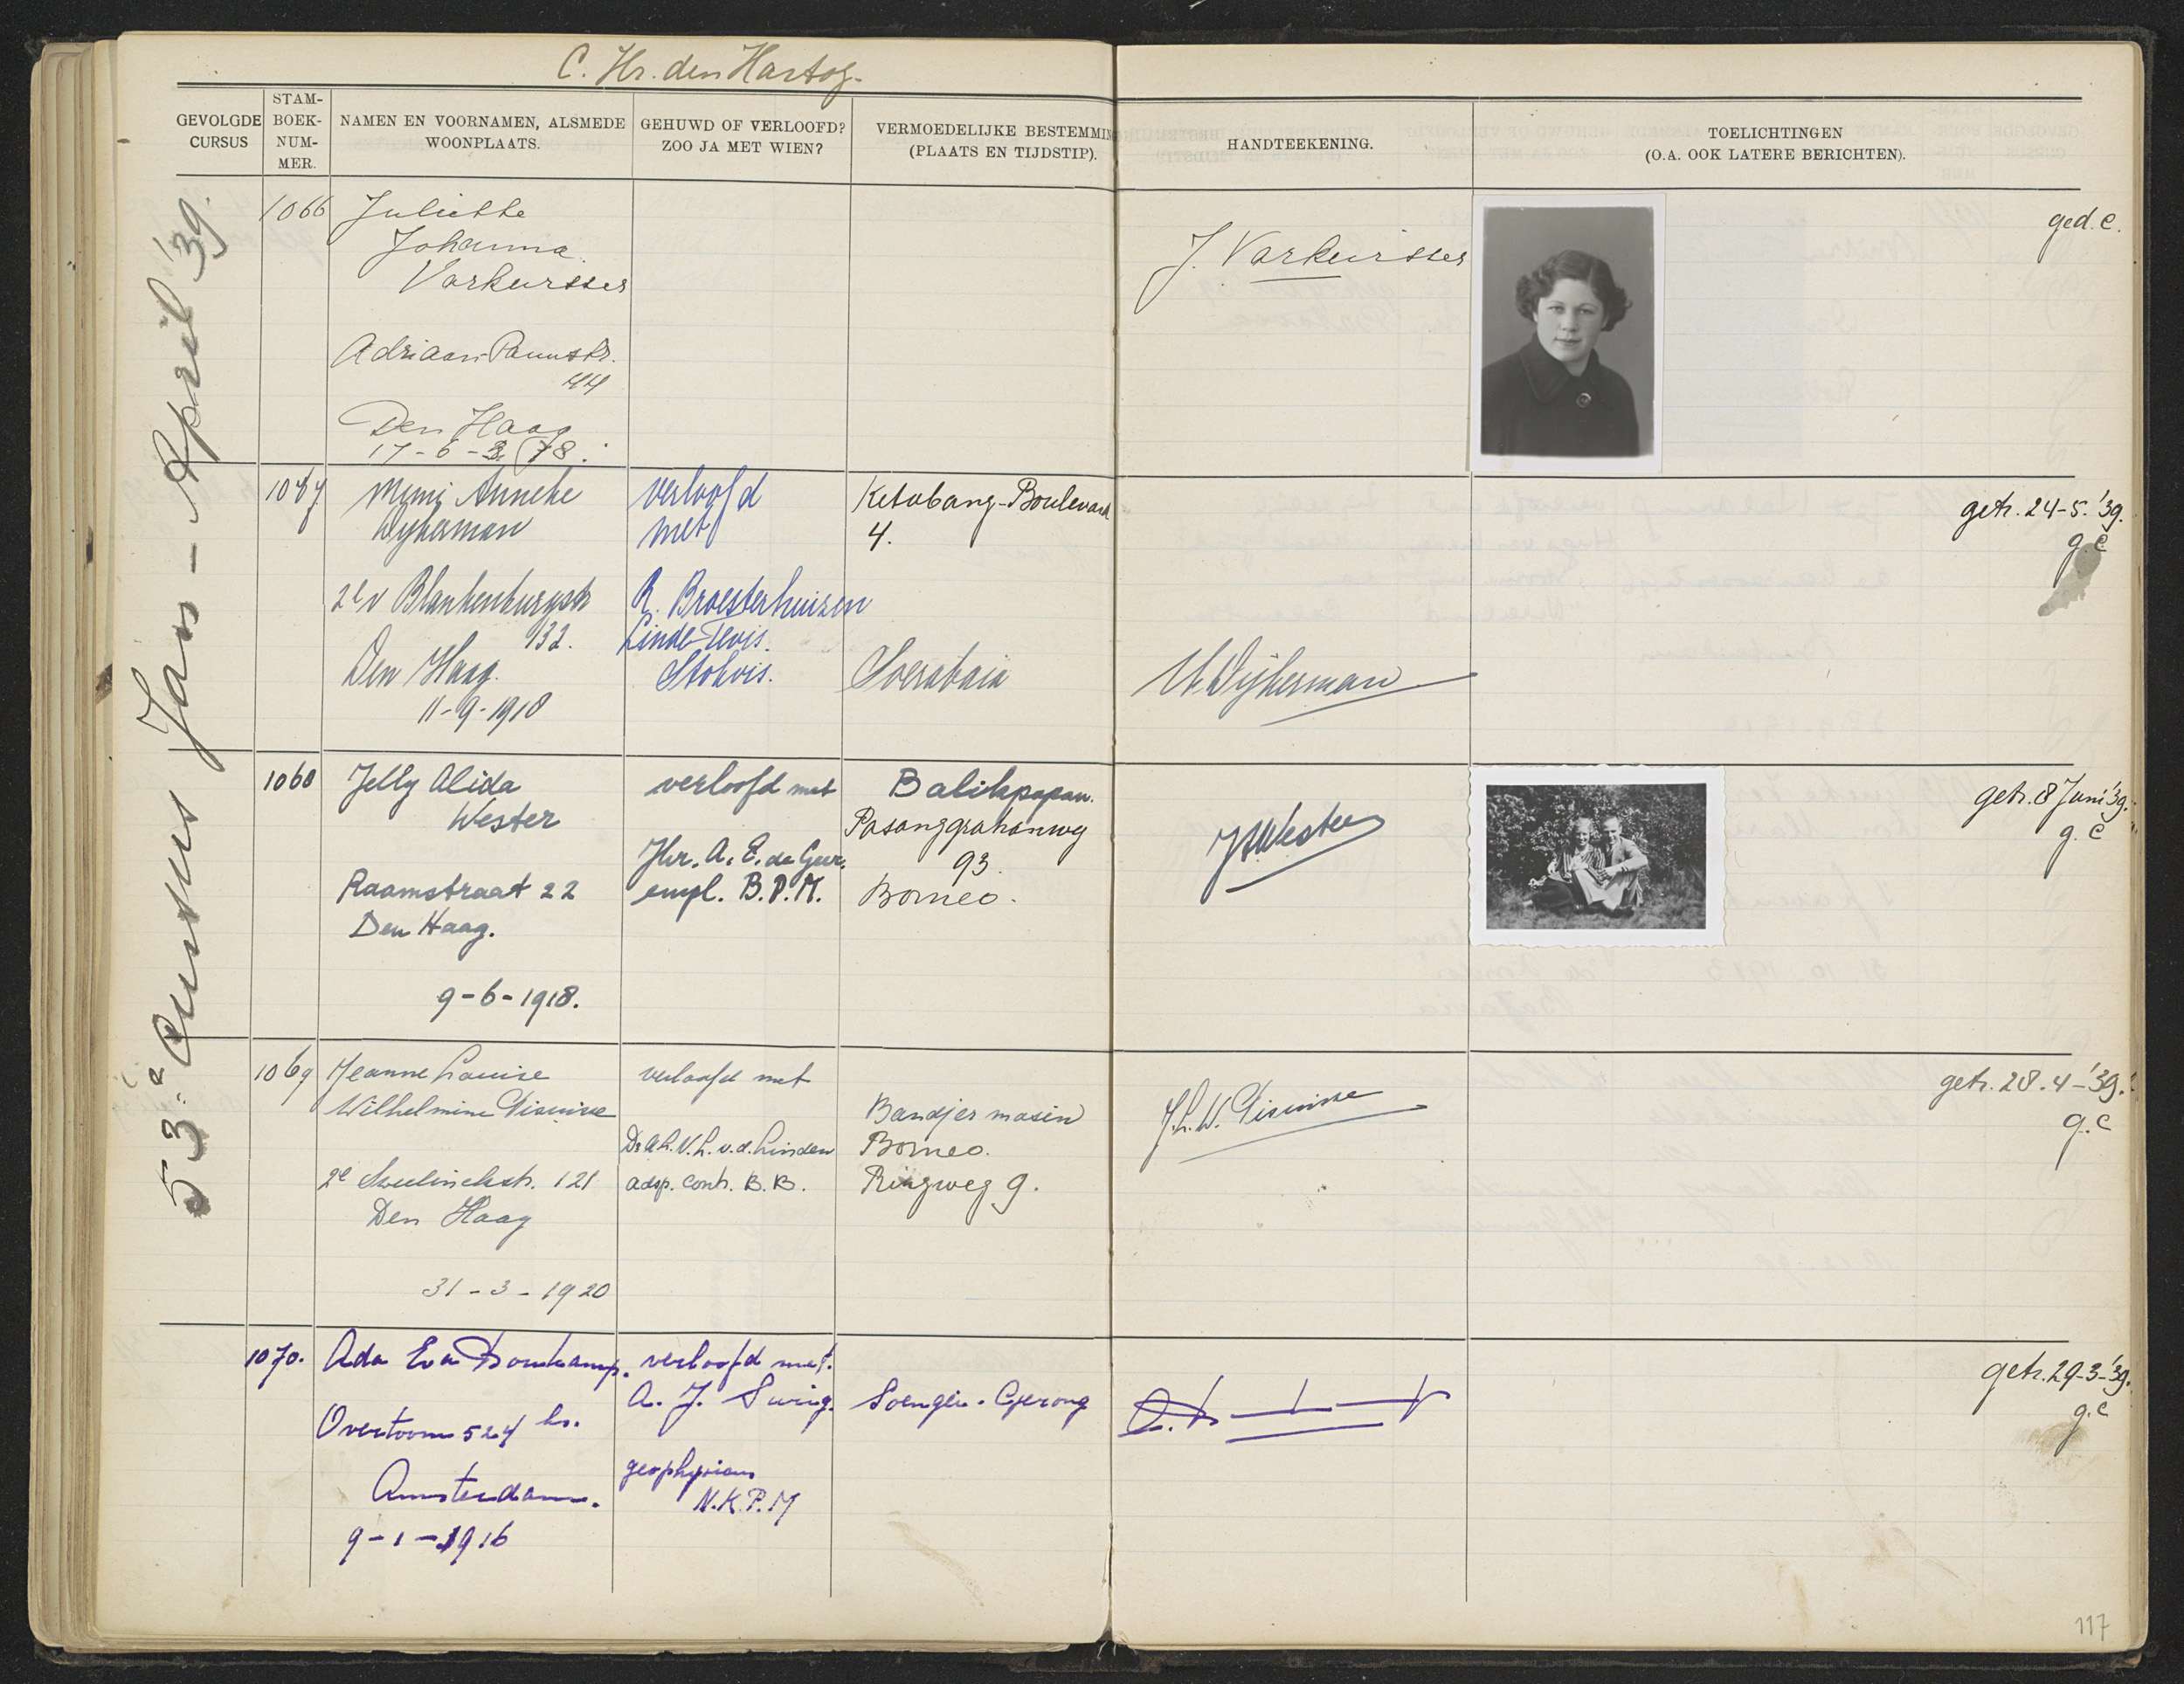 C. Hr. den Hartog.
GEVOLGDE CURSUS
STAM-BOEK-NUM-MER.
NAMEN EN VOORNAMEN, ALSMEDE WOONPLAATS.
GEHUWD OF VERLOOFD? ZOO JA MET WIEN?
VERMOEDELIJKE BESTEMMIN (PLAATS EN TIJDSTIP).
HANDTEEKENING.
TOELICHTINGEN
(O.A. OOK LATERE BERICHTEN).
53e Cursus Jan - April '39.
1066
Juliette
Johanna
Varkevisser
Adriaan Pauwstr.
44
Den Haag
17-6-
J. Varkevisser
ged. c.
1067
Mimi Anneke
Wijkerman
2e v Blankenburgstr
132.
Den Haag.
11-9-1918
verloofd
met
R. Broesterhuizen
Linde-Tevis.
Stokvis.
Ketabang-Boulevard
4.
Soerabaia
M. Wijkerman
getr. 24-5-'39.
g.c
1068
Jelly Alida
Wester
Raamstraat 22
Den Haag.
9-6-1918.
verloofd met
Jhr. A. E. de Geer.
empl. B.P.M.
Balikpapan.
Pasanggrahanweg
93.
Borneo.
JAWester
getr. 8 Juni '39.
g.c
1069
Jeanne Louise
Wilhelmine
2e Sweelinckstr. 121
Den Haag
31-3-1920
verloofd met
v.d. Linden
adsp. contr. B.B.
Bandjermasin
Borneo.
Ringweg 9.
J.L.W.
getr. 28-4-'39.
g.c
1070.
Ada Eva
Overtoom 524 hs.
Amsterdam.
9-1-1916
verloofd met.
A. J. Swing.
N.K.P.M
Soengei-Gerong
getr. 29-3-'39.
g.c
117